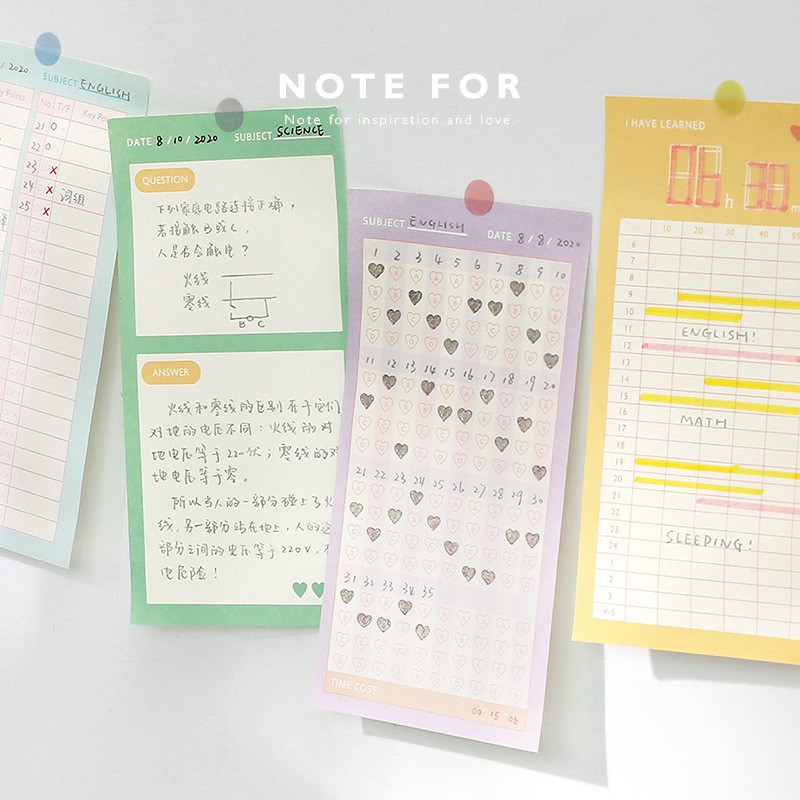 NOTE FOR
Note for inspiration and love.
2020 SUBJECT ENGLISH
Points No. T/F Key Po
21 O
22 O
23 x
24 x 词组
25 x
DATE 8/10/2020 SUBJECT SCIENCE
QUESTION
下列家庭电路连接正确，
若接触B或C，
人是否会触电？
火线
零线
B C
ANSWER
火线和零线的区别在于它们
对地的电压不同：火线的对
地电压等于220伏；零线的对
地电压等于零。
所以当人的一部分碰上了火
线，另一部分站在地上，人的这
部分之间的电压等于220V，有
电危险！
SUBJECT ENGLISH DATE 8/8/2020
1 2 3 4 5 6 7 8 9 10
11 12 13 14 15 16 17 18 19 20
21 22 23 24 25 26 27 28 29 30
31 32 33 34 35
TIME COST
00 15 06
I HAVE LEARNED
06 h 30 m
10 20 30 40 50
6
7
8
9
10
11 ENGLISH!
12
14
15
16 MATH
18
19
20
21
22
23 SLEEPING!
24
1
2
3
4-5